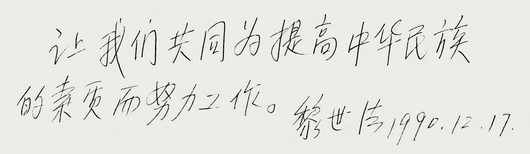 让我们共同为提高中华民族
的素质而努力工作。黎世法1990.12.17.